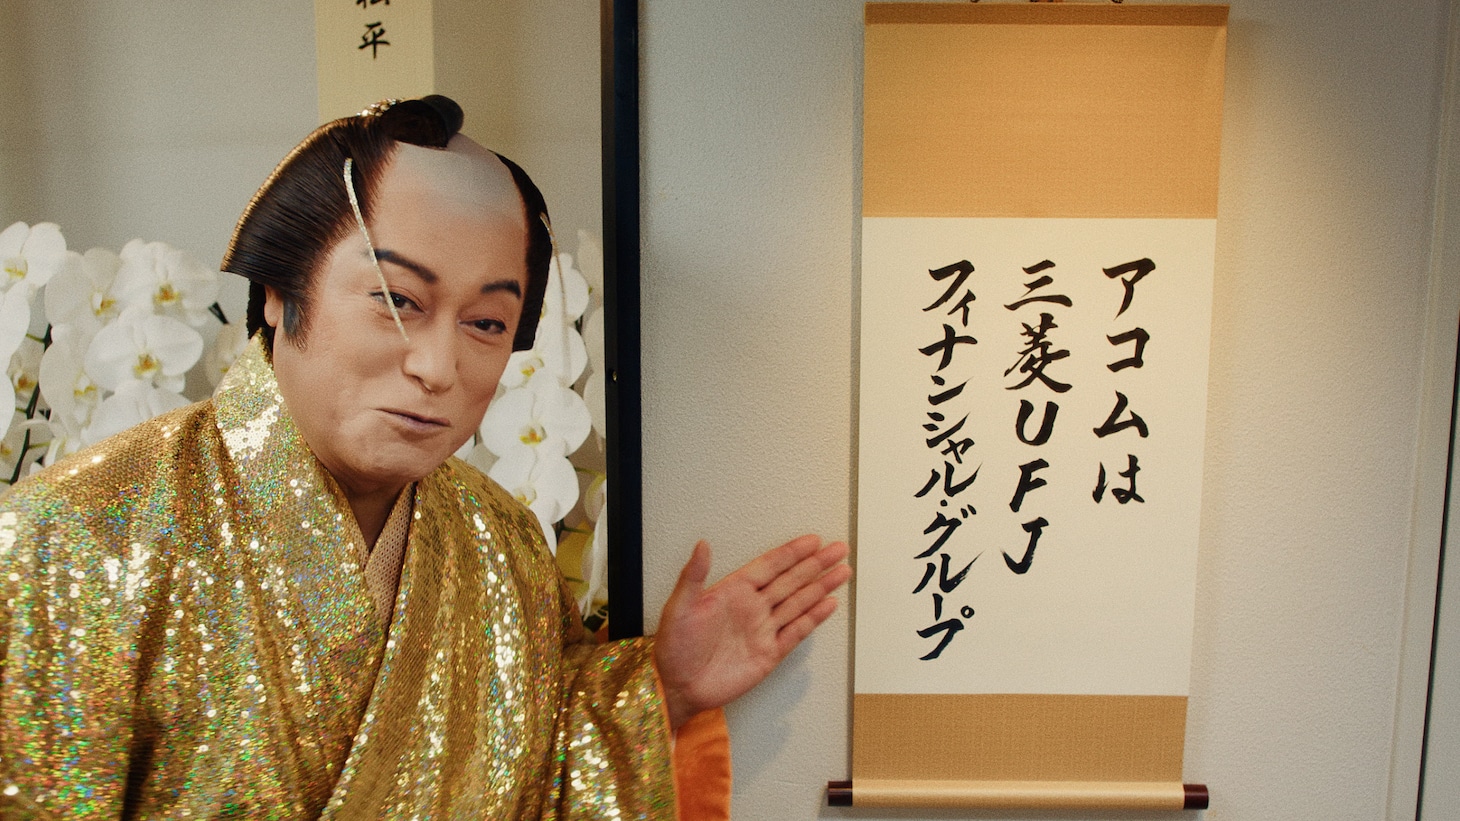 平
アコムは
三菱UFJ
フィナンシャル・グループ